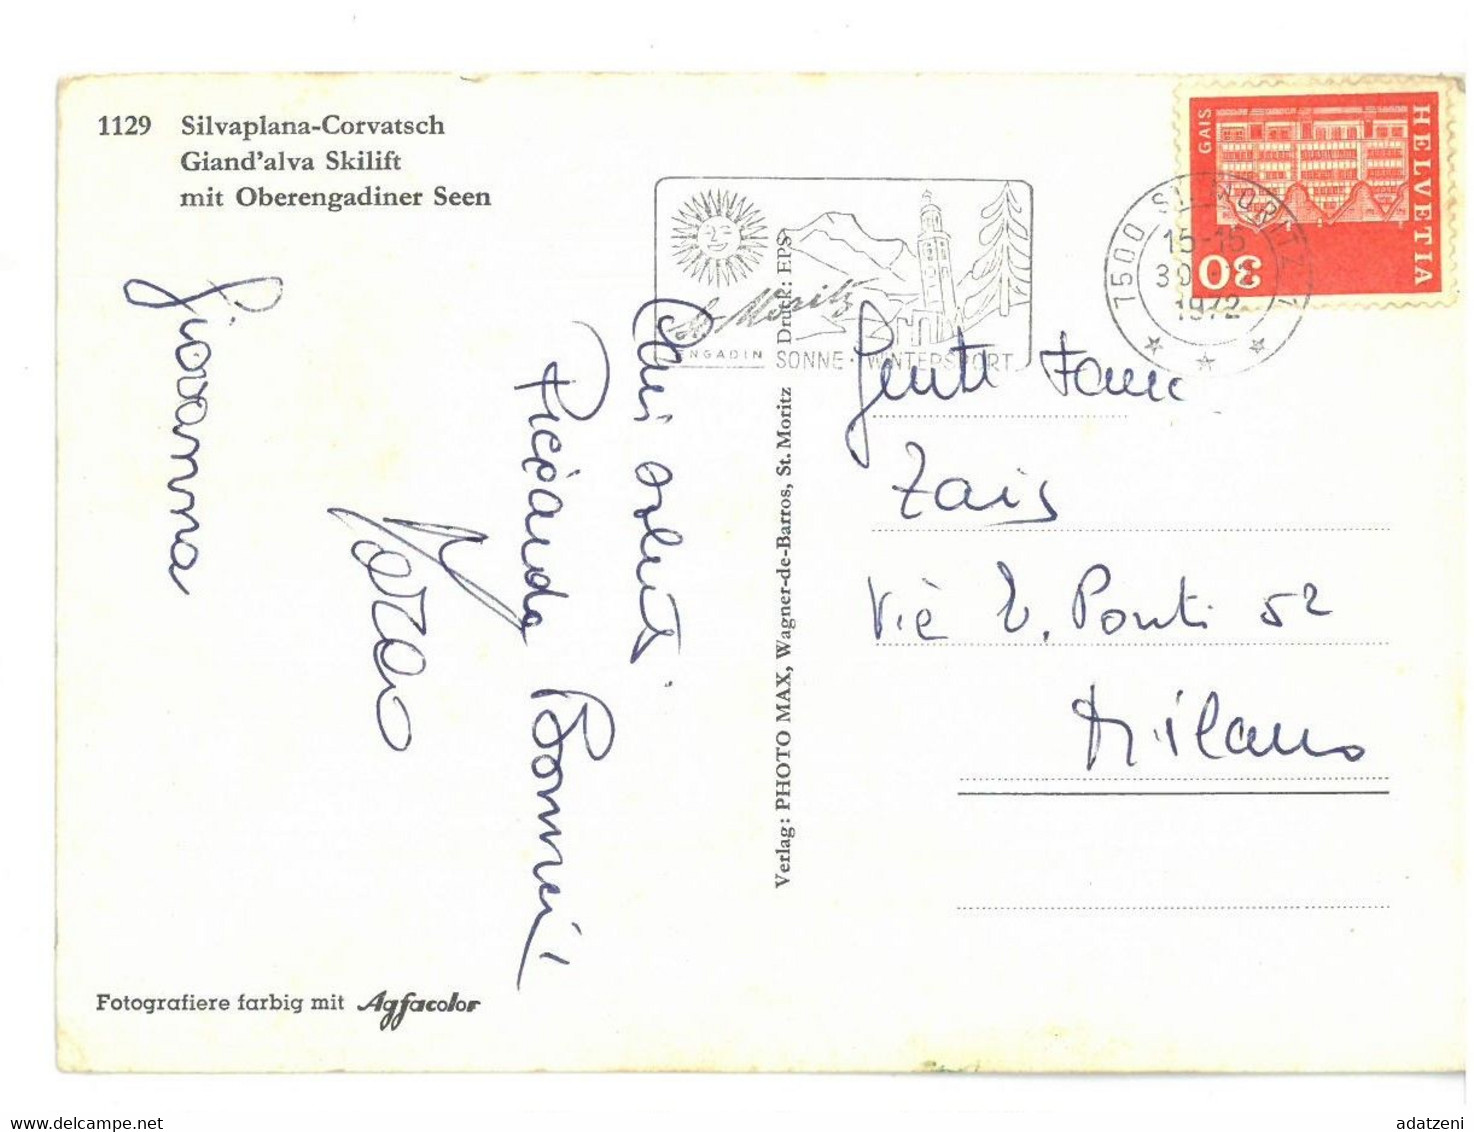 1129 Silvaplana-Corvatsch
Giand'alva Skilift
mit Oberengadiner Seen
HELVETIA
GAIS
30
7500 ST. MORITZ 1
15-15
30
1972
St. Moritz
ENGADIN SONNE · WINTERSPORT
Cari saluti
Giovanna
Verlag: PHOTO MAX, Wagner-de-Barros, St. Moritz Druck: EPS
Zais
Via E. Ponti 52
Milano
Fotografiere farbig mit Agfacolor
adatzeni